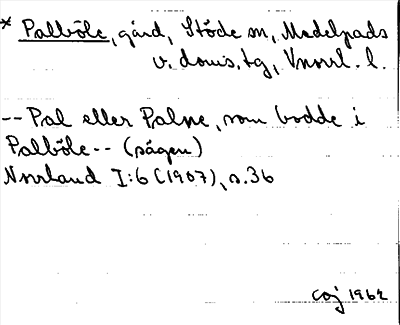 * Palböle, gård, Stöde sn, Medelpads
v. doms.tg, Vnorrl. l.
-- Pal eller Palne, som bodde i
Palböle -- (sägen)
Norrland I:6 (1907), s.36
caj 1962